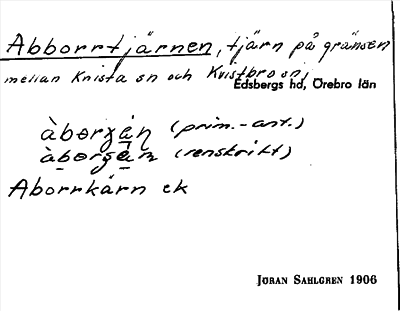 Abborrtjärnen, tjärn på gränsen
mellan Knista sn och Kvistbro sn,
Edsbergs hd, Örebro län
àborȷän (prim.-ant.)
àborgän (renskrift)
Aborrkärn ek
JÖRAN SAHLGREN 1906